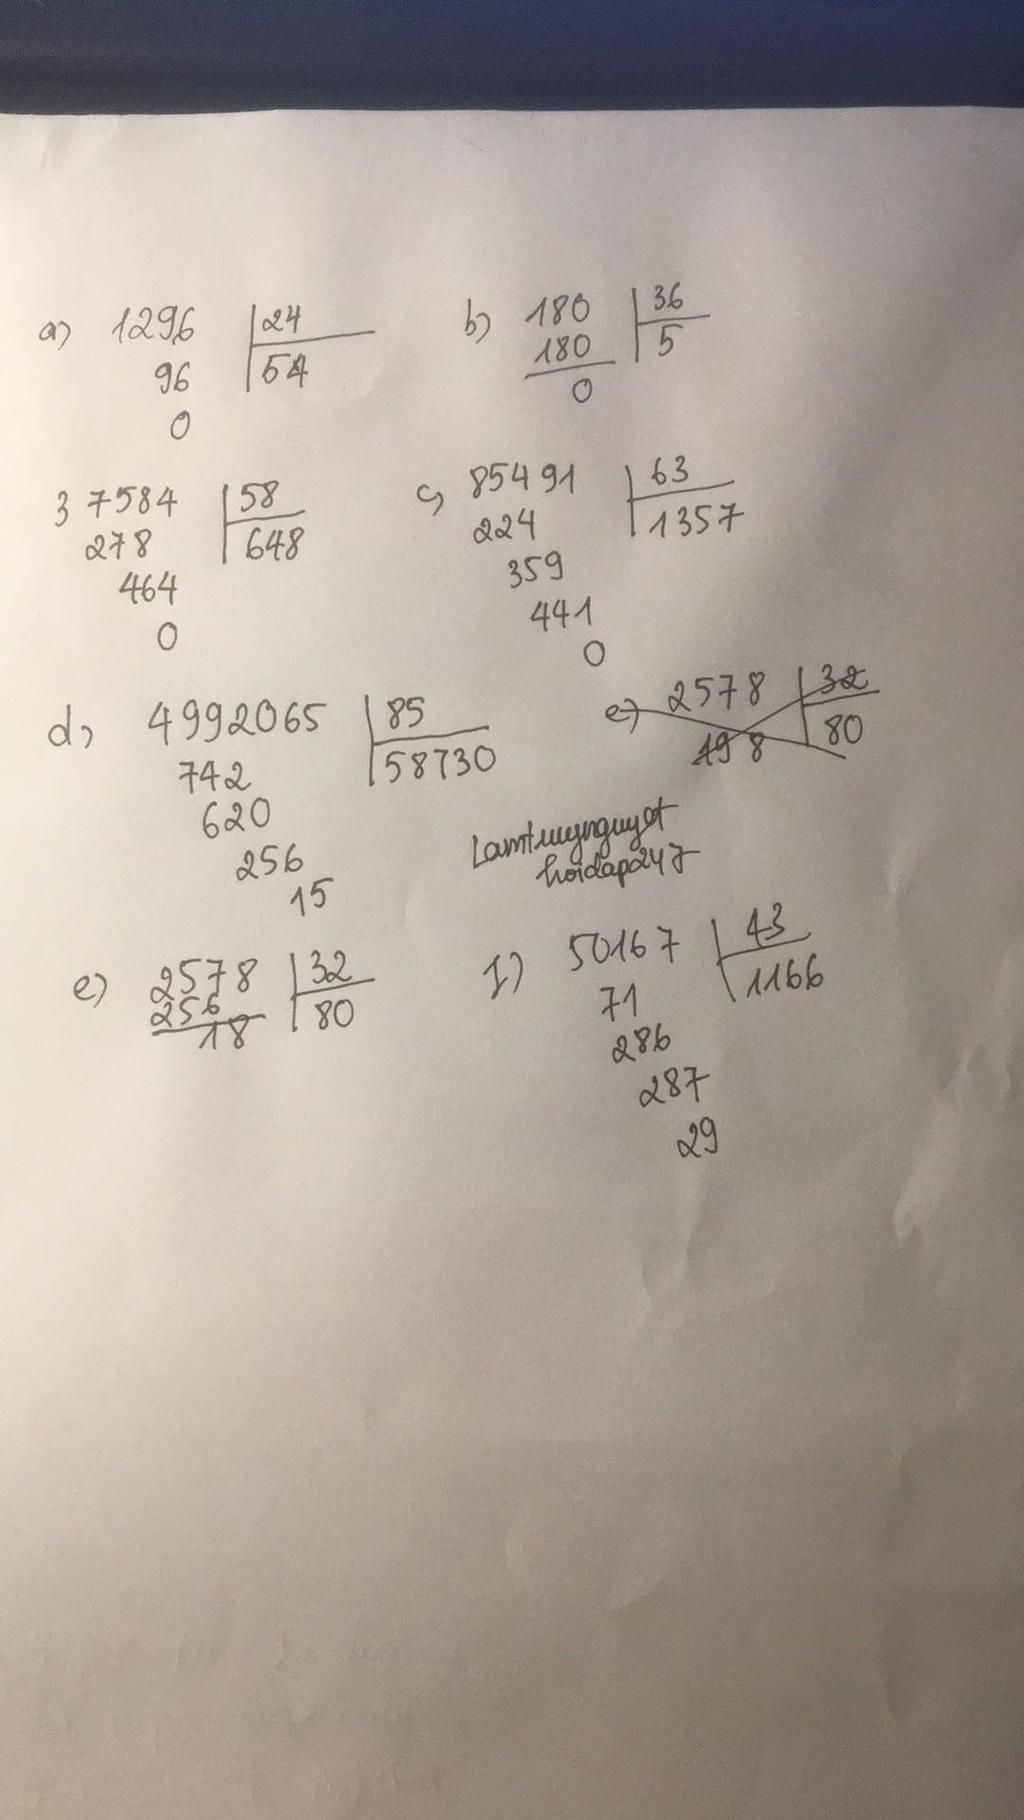 a) 1296 24
96 54
0
b) 180 36
180 5
0
37584 58
278 648
464
0
c) 85491 63
224 1357
359
441
0
d) 4992065 85
742 58730
620
256
15
e) 2578 32
198 80
Lamtuuynguyet
hoidap247
e) 2578 32
256 80
18
f) 50167 43
71 1166
286
287
29